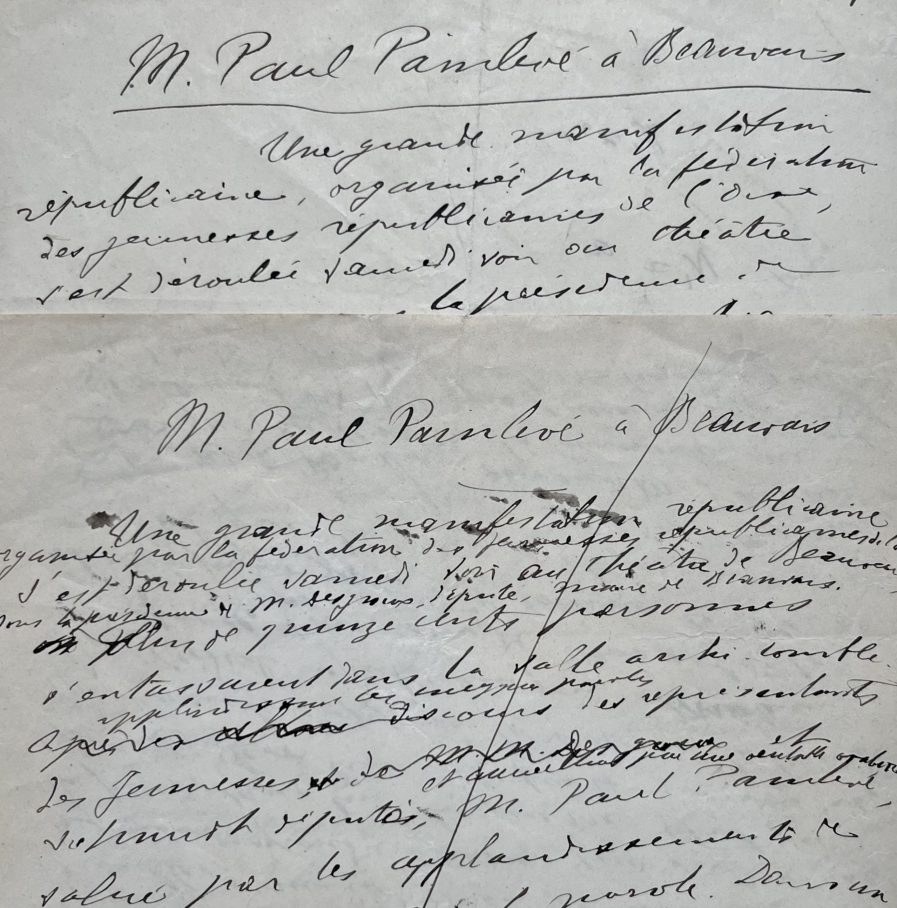 M. Paul Painlevé à Beauvais
Une grande manifestation
républicaine, organisée par la fédération
des jeunesses républicaines de l'Oise,
s'est déroulée samedi soir au théâtre
la présidence de
M. Paul Painlevé à Beauvais
Une grande manifestation républicaine
organisée par la fédération des jeunesses républicaines de l'
s'est déroulée samedi soir au Théâtre de Beauvais
sous la présidence de M. Desgroux, député, maire de Beauvais.
Plus de quinze cents personnes
s'entassaient dans la salle archi-comble.
applaudissant les
Après des discours des représentants
des Jeunesses, et de M. M. Desgroux et
et accueilli par une véritable ovation
Schmidt députés, M. Paul Painlevé,
salué par les applaudissements de
parole. Dans un